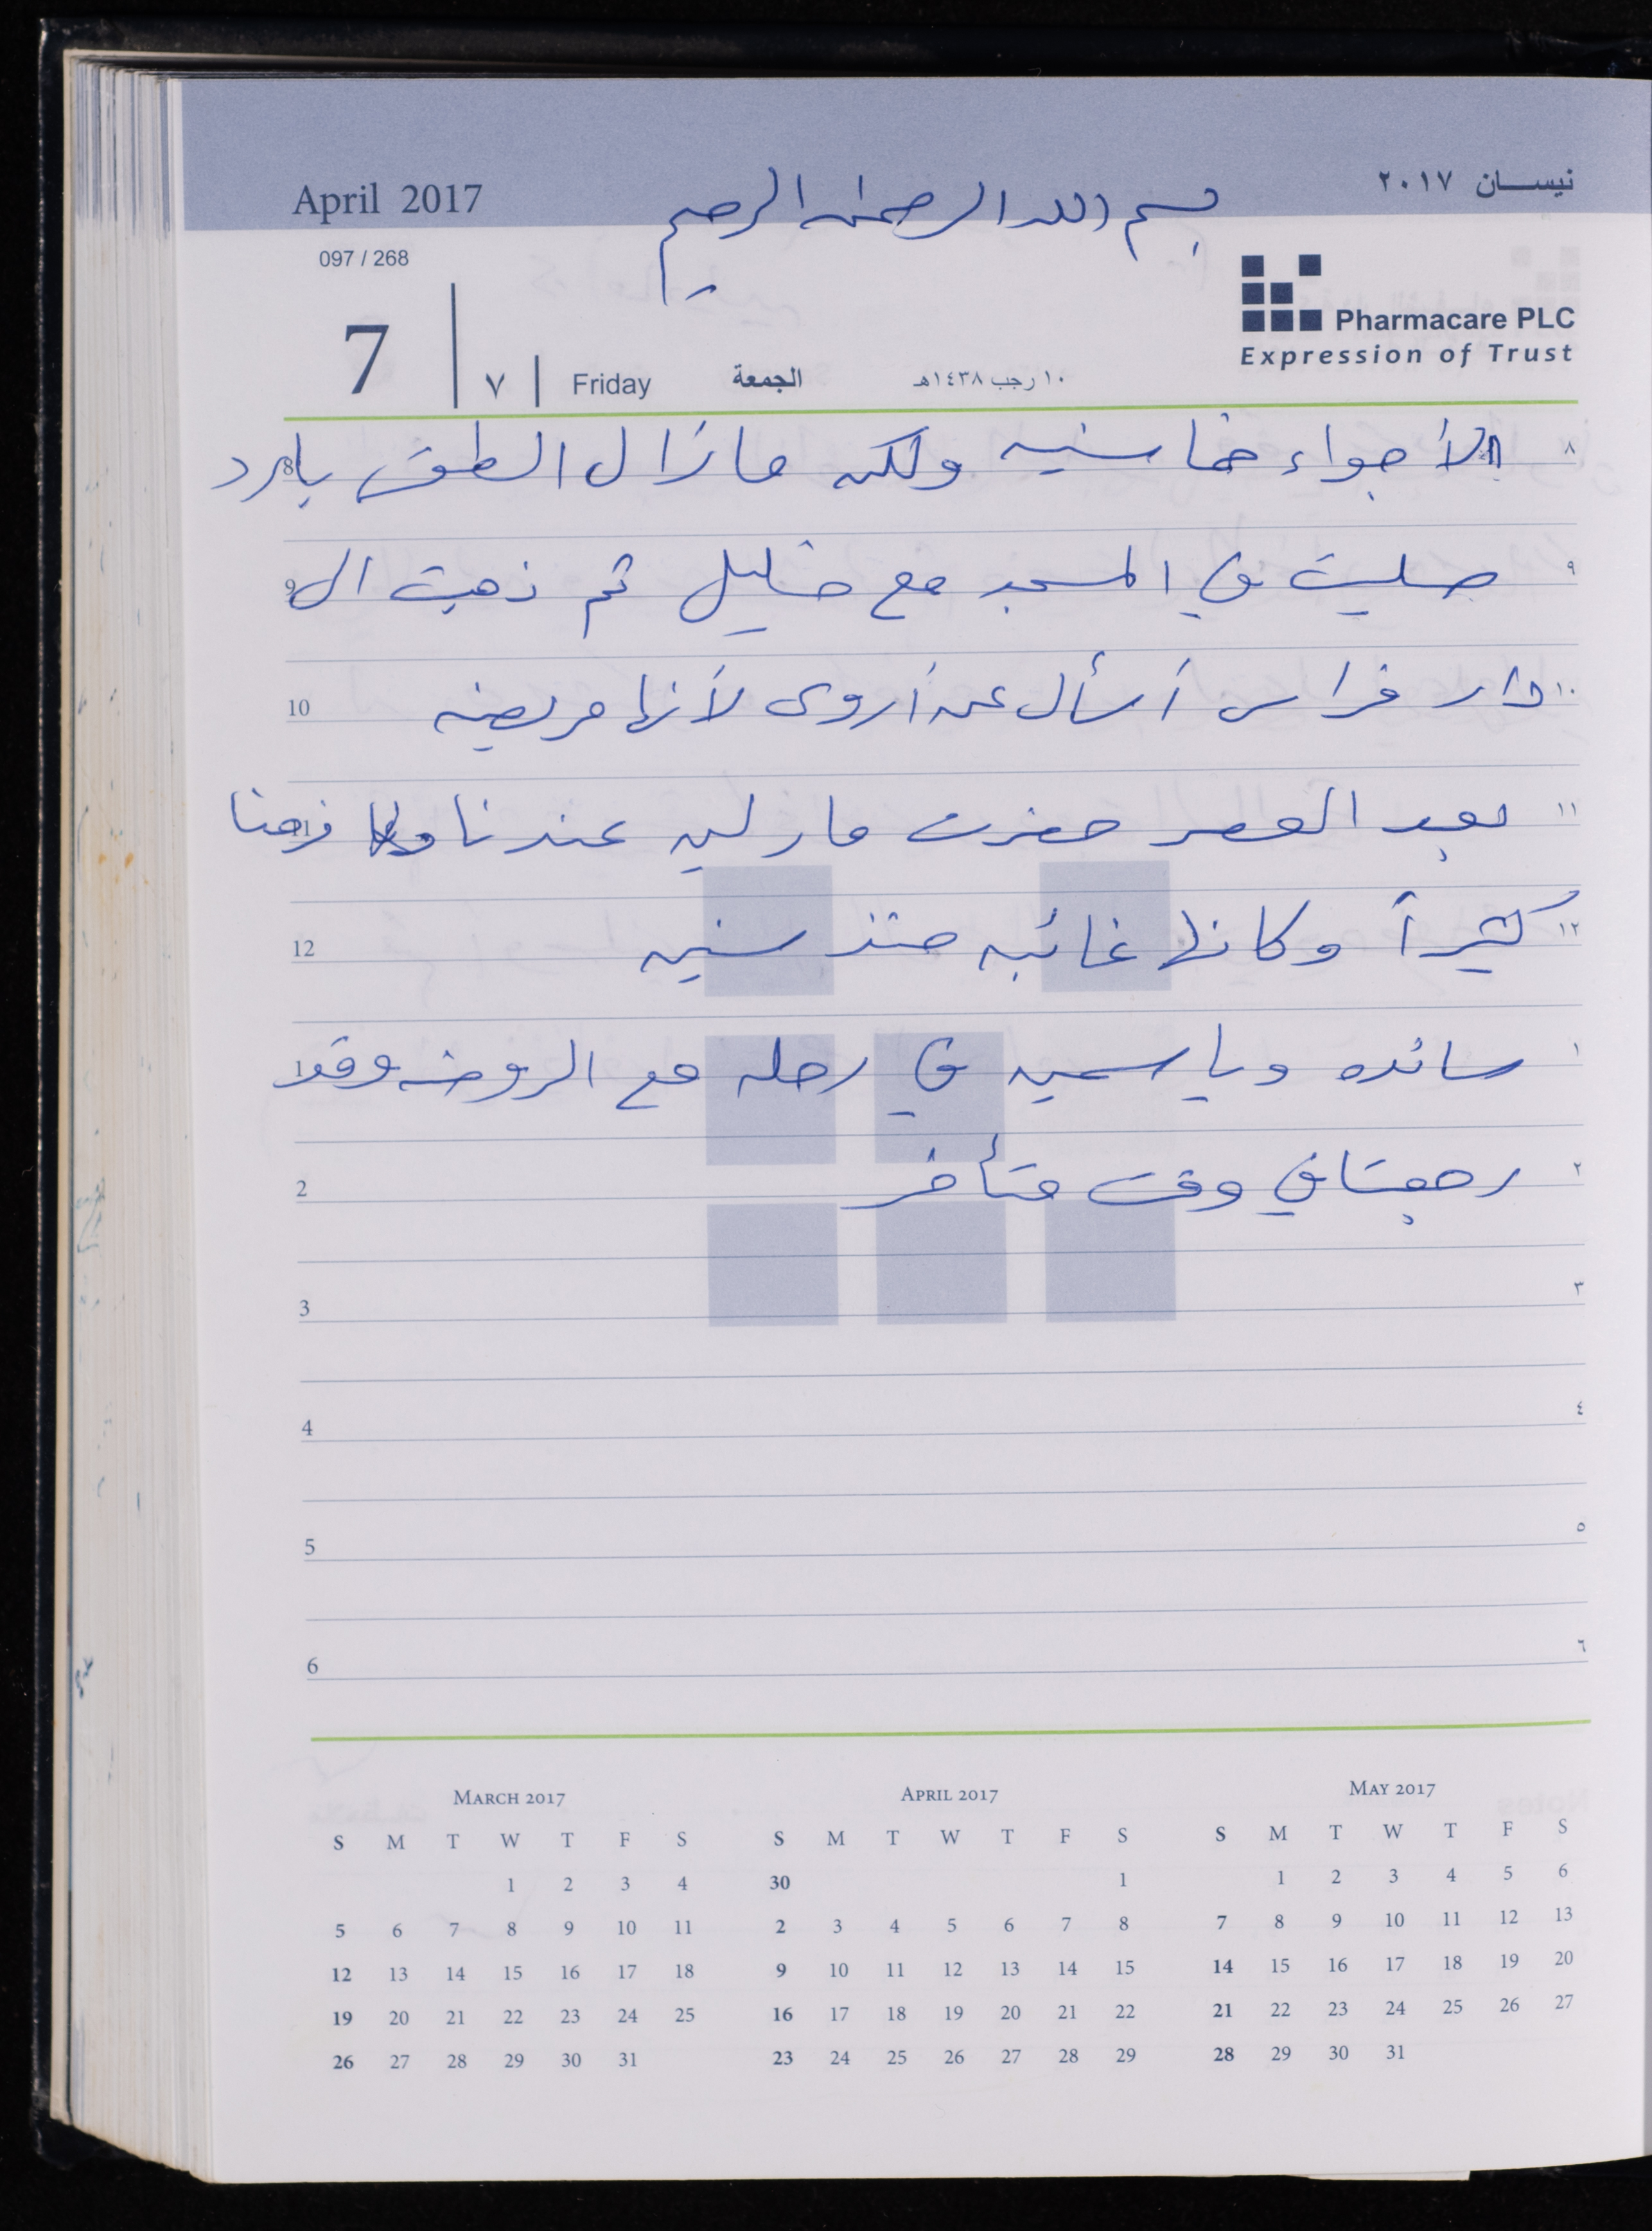 April 2017
نيسان ٢٠١٧
بسم الله الرحمن الرحيم
097 / 268
Pharmacare PLC
Expression of Trust
7 | ٧ | Friday الجمعة ١٠ رجب ١٤٣٨هـ
٨ الأجواء خماسنيه ولكن مازال الطقس بارد 8
٩ صليت في المسجد مع خليل ثم ذهبت الى 9
١٠ دار فراس أسأل عن أروى لأنها مريضه 10
١١ بعد العصر حضرت مارلين عندنا وفرحنا 11
١٢ كثيراً وكانها غائبه منذ سنين 12
١ سائده وياسمين في رحله مع الروضه وقد 1
٢ رجعتا في وقت متأخر 2
٣ 3
٤ 4
٥ 5
٦ 6
MARCH 2017
S M T W T F S
1 2 3 4
5 6 7 8 9 10 11
12 13 14 15 16 17 18
19 20 21 22 23 24 25
26 27 28 29 30 31
APRIL 2017
S M T W T F S
30 1
2 3 4 5 6 7 8
9 10 11 12 13 14 15
16 17 18 19 20 21 22
23 24 25 26 27 28 29
MAY 2017
S M T W T F S
1 2 3 4 5 6
7 8 9 10 11 12 13
14 15 16 17 18 19 20
21 22 23 24 25 26 27
28 29 30 31